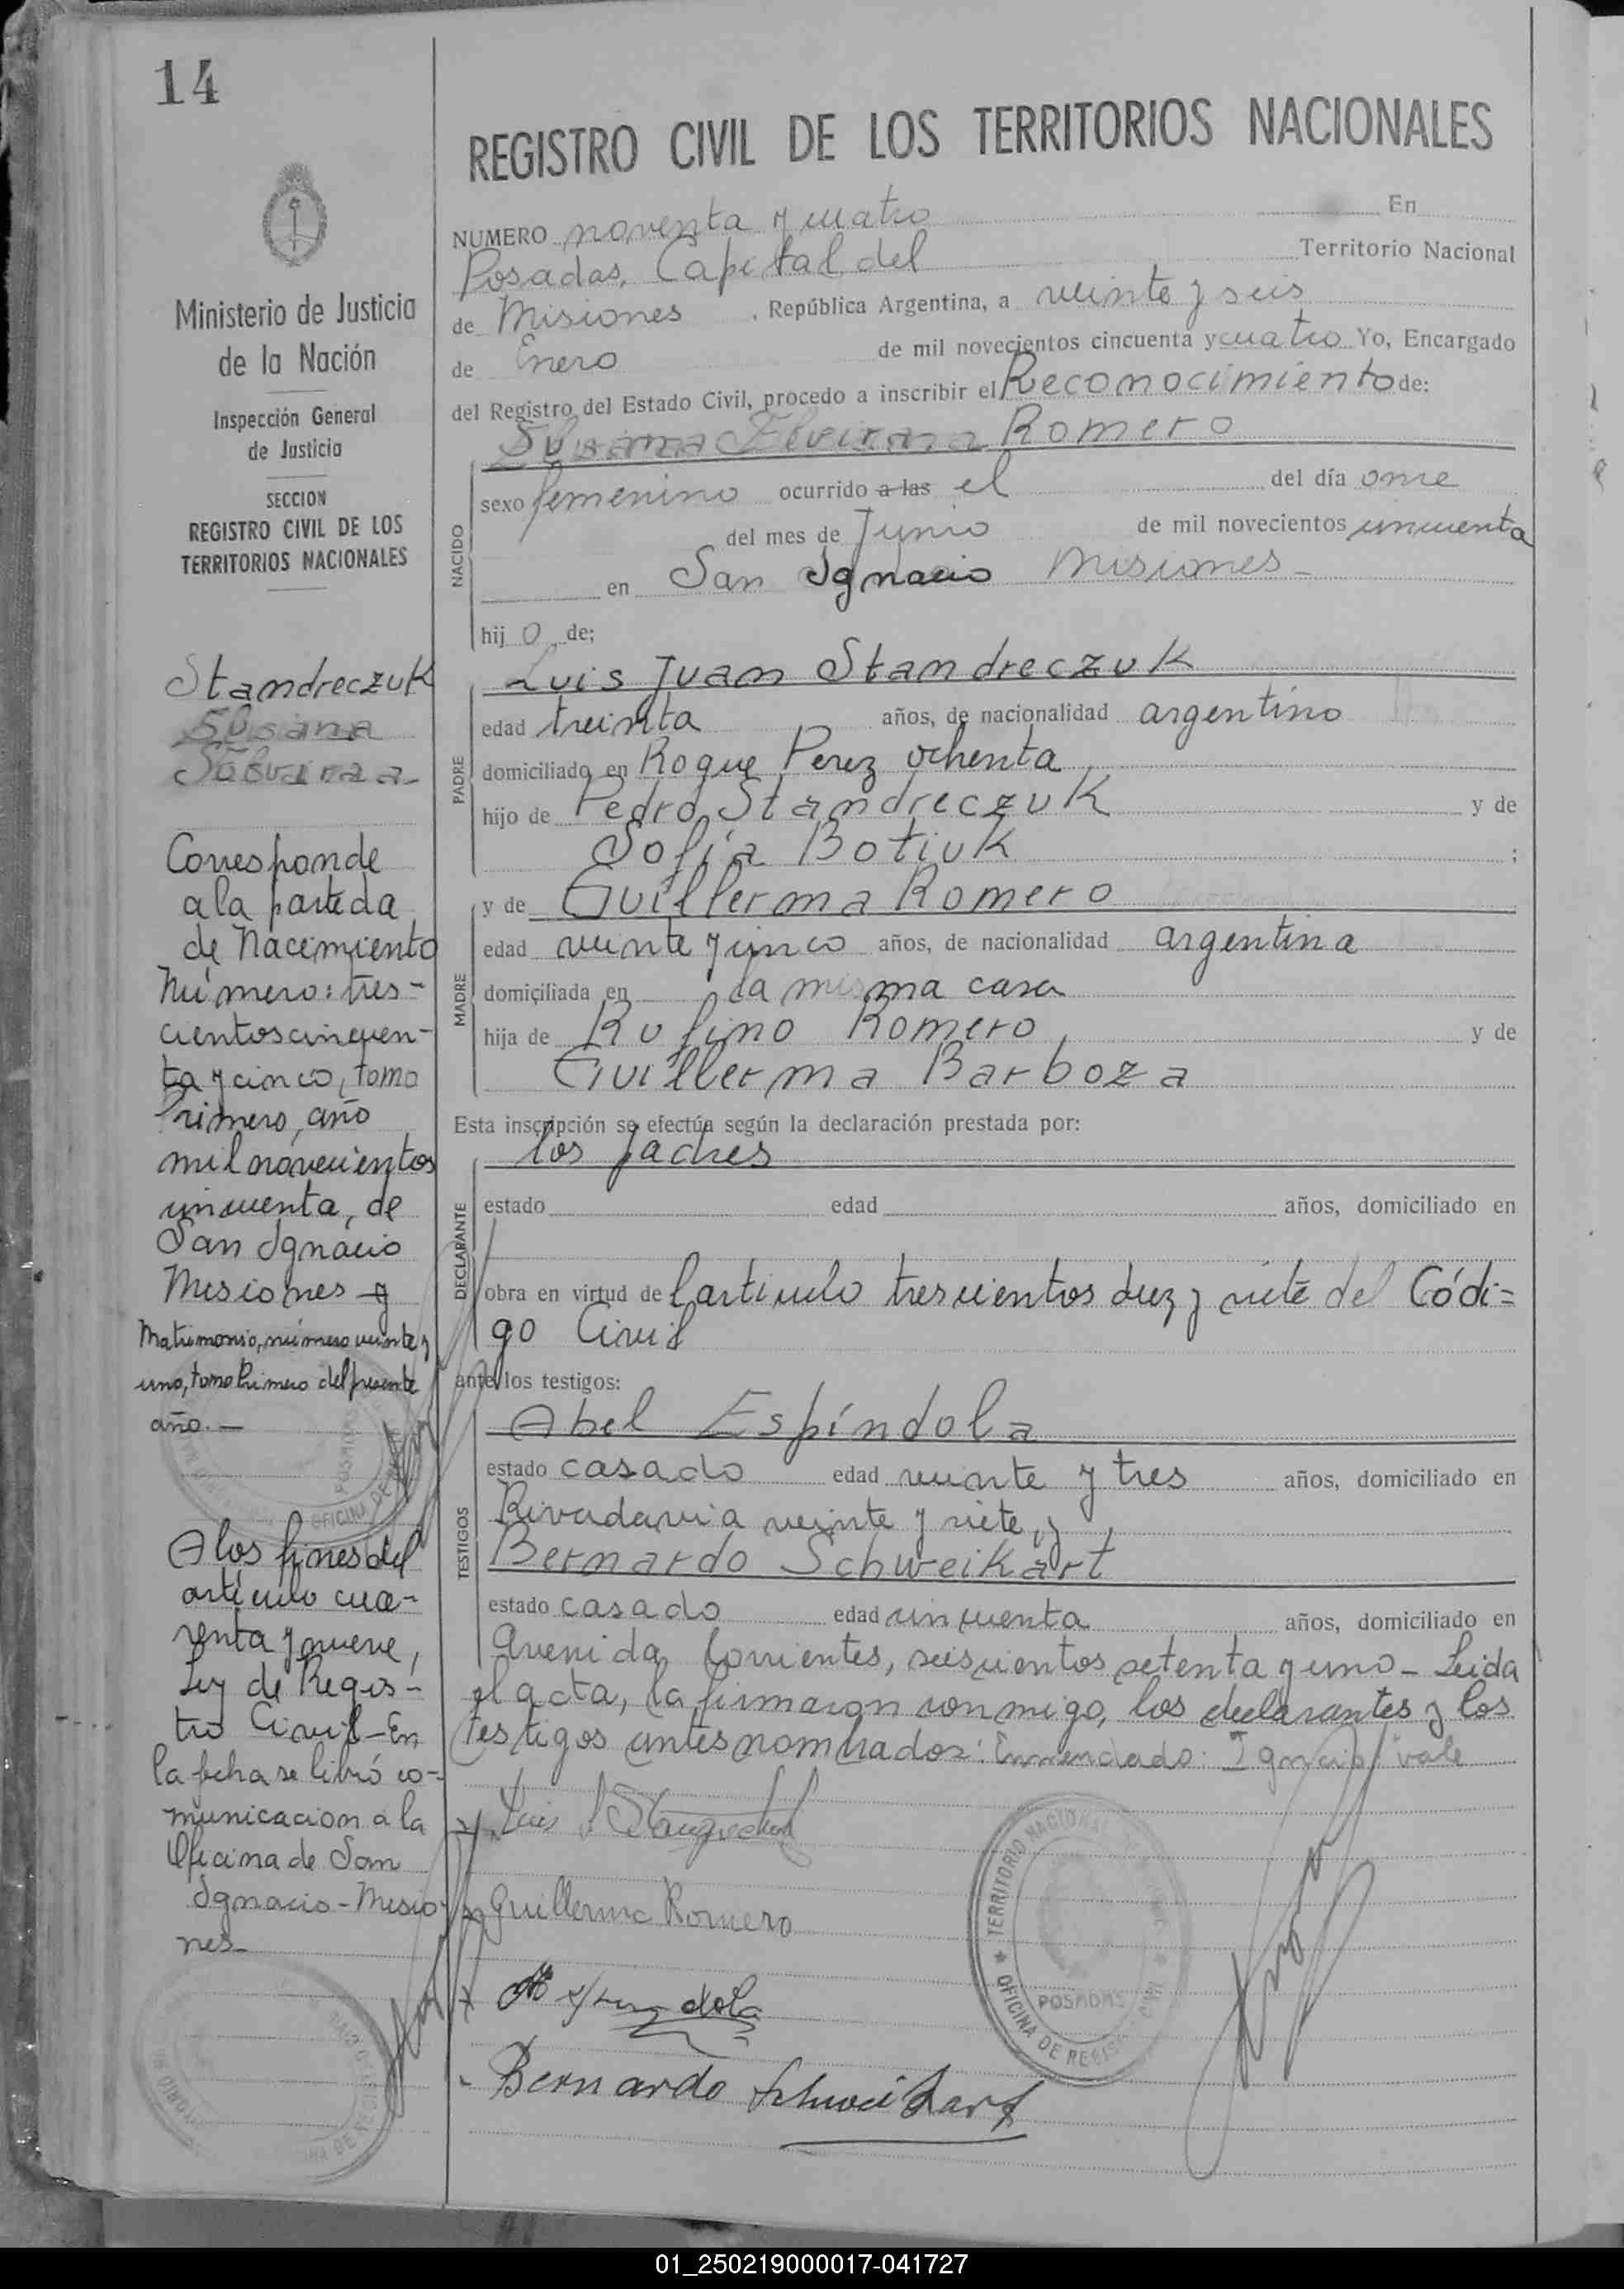 14
Ministerio de Justicia
de la Nación
Inspección General
de Justicia
SECCION
REGISTRO CIVIL DE LOS
TERRITORIOS NACIONALES
Standreczuk
Corresponde
a la partida
de Nacimiento
Número: tres-
cientos cincuen-
ta y cinco, tomo
Primero, año
mil novecientos
cincuenta, de
San Ignacio
Misiones y
Matrimonio, número veinte y
uno, tomo Primero del presente
año.—
A los fines del
artículo cua-
renta y nueve,
Ley de Regis-
tro Civil-En
la fecha se libró co-
municacion a la
Oficina de San
Ignacio-Misio
nes-
REGISTRO CIVIL DE LOS TERRITORIOS NACIONALES
NUMERO noventa y cuatro En
Posadas, Capital del Territorio Nacional
de Misiones, República Argentina, a veinte y seis
de Enero de mil novecientos cincuenta y cuatro Yo, Encargado
del Registro del Estado Civil, procedo a inscribir el Reconocimiento de:
Romero
NACIDO
sexo femenino ocurrido a las el del día once
del mes de Junio de mil novecientos cincuenta
en San Ignacio Misiones-
hij o de;
PADRE
Luis Juan Standreczuk
edad treinta años, de nacionalidad argentino
domiciliado en Roque Perez ochenta
hijo de Pedro Standreczuk y de
Sofía Botiuk ;
MADRE
y de Guillerma Romero
edad veinte y cinco años, de nacionalidad argentina
domiciliada en la misma casa
hija de Rufino Romero y de
Guillerma Barboza
Esta inscripción se efectúa según la declaración prestada por:
DECLARANTE
los padres
estado edad años, domiciliado en
obra en virtud del artículo trescientos diez y siete del Códi=
go Civil
ante los testigos:
TESTIGOS
Abel Espíndola
estado casado edad veinte y tres años, domiciliado en
Rivadavia veinte y siete, y
Bernardo Schweikart
estado casado edad cincuenta años, domiciliado en
Avenida Corrientes, seiscientos setenta y uno- Leida
el acta, la firmaron conmigo, los declarantes y los
testigos antes nombrados: Enmendado: Ignacio: vale
Luis
Guillerma Romero
Bernardo Schweikart
TERRITORIO NACIONAL
OFICINA DE REGISTRO CIVIL
POSADAS
01_250219000017-041727